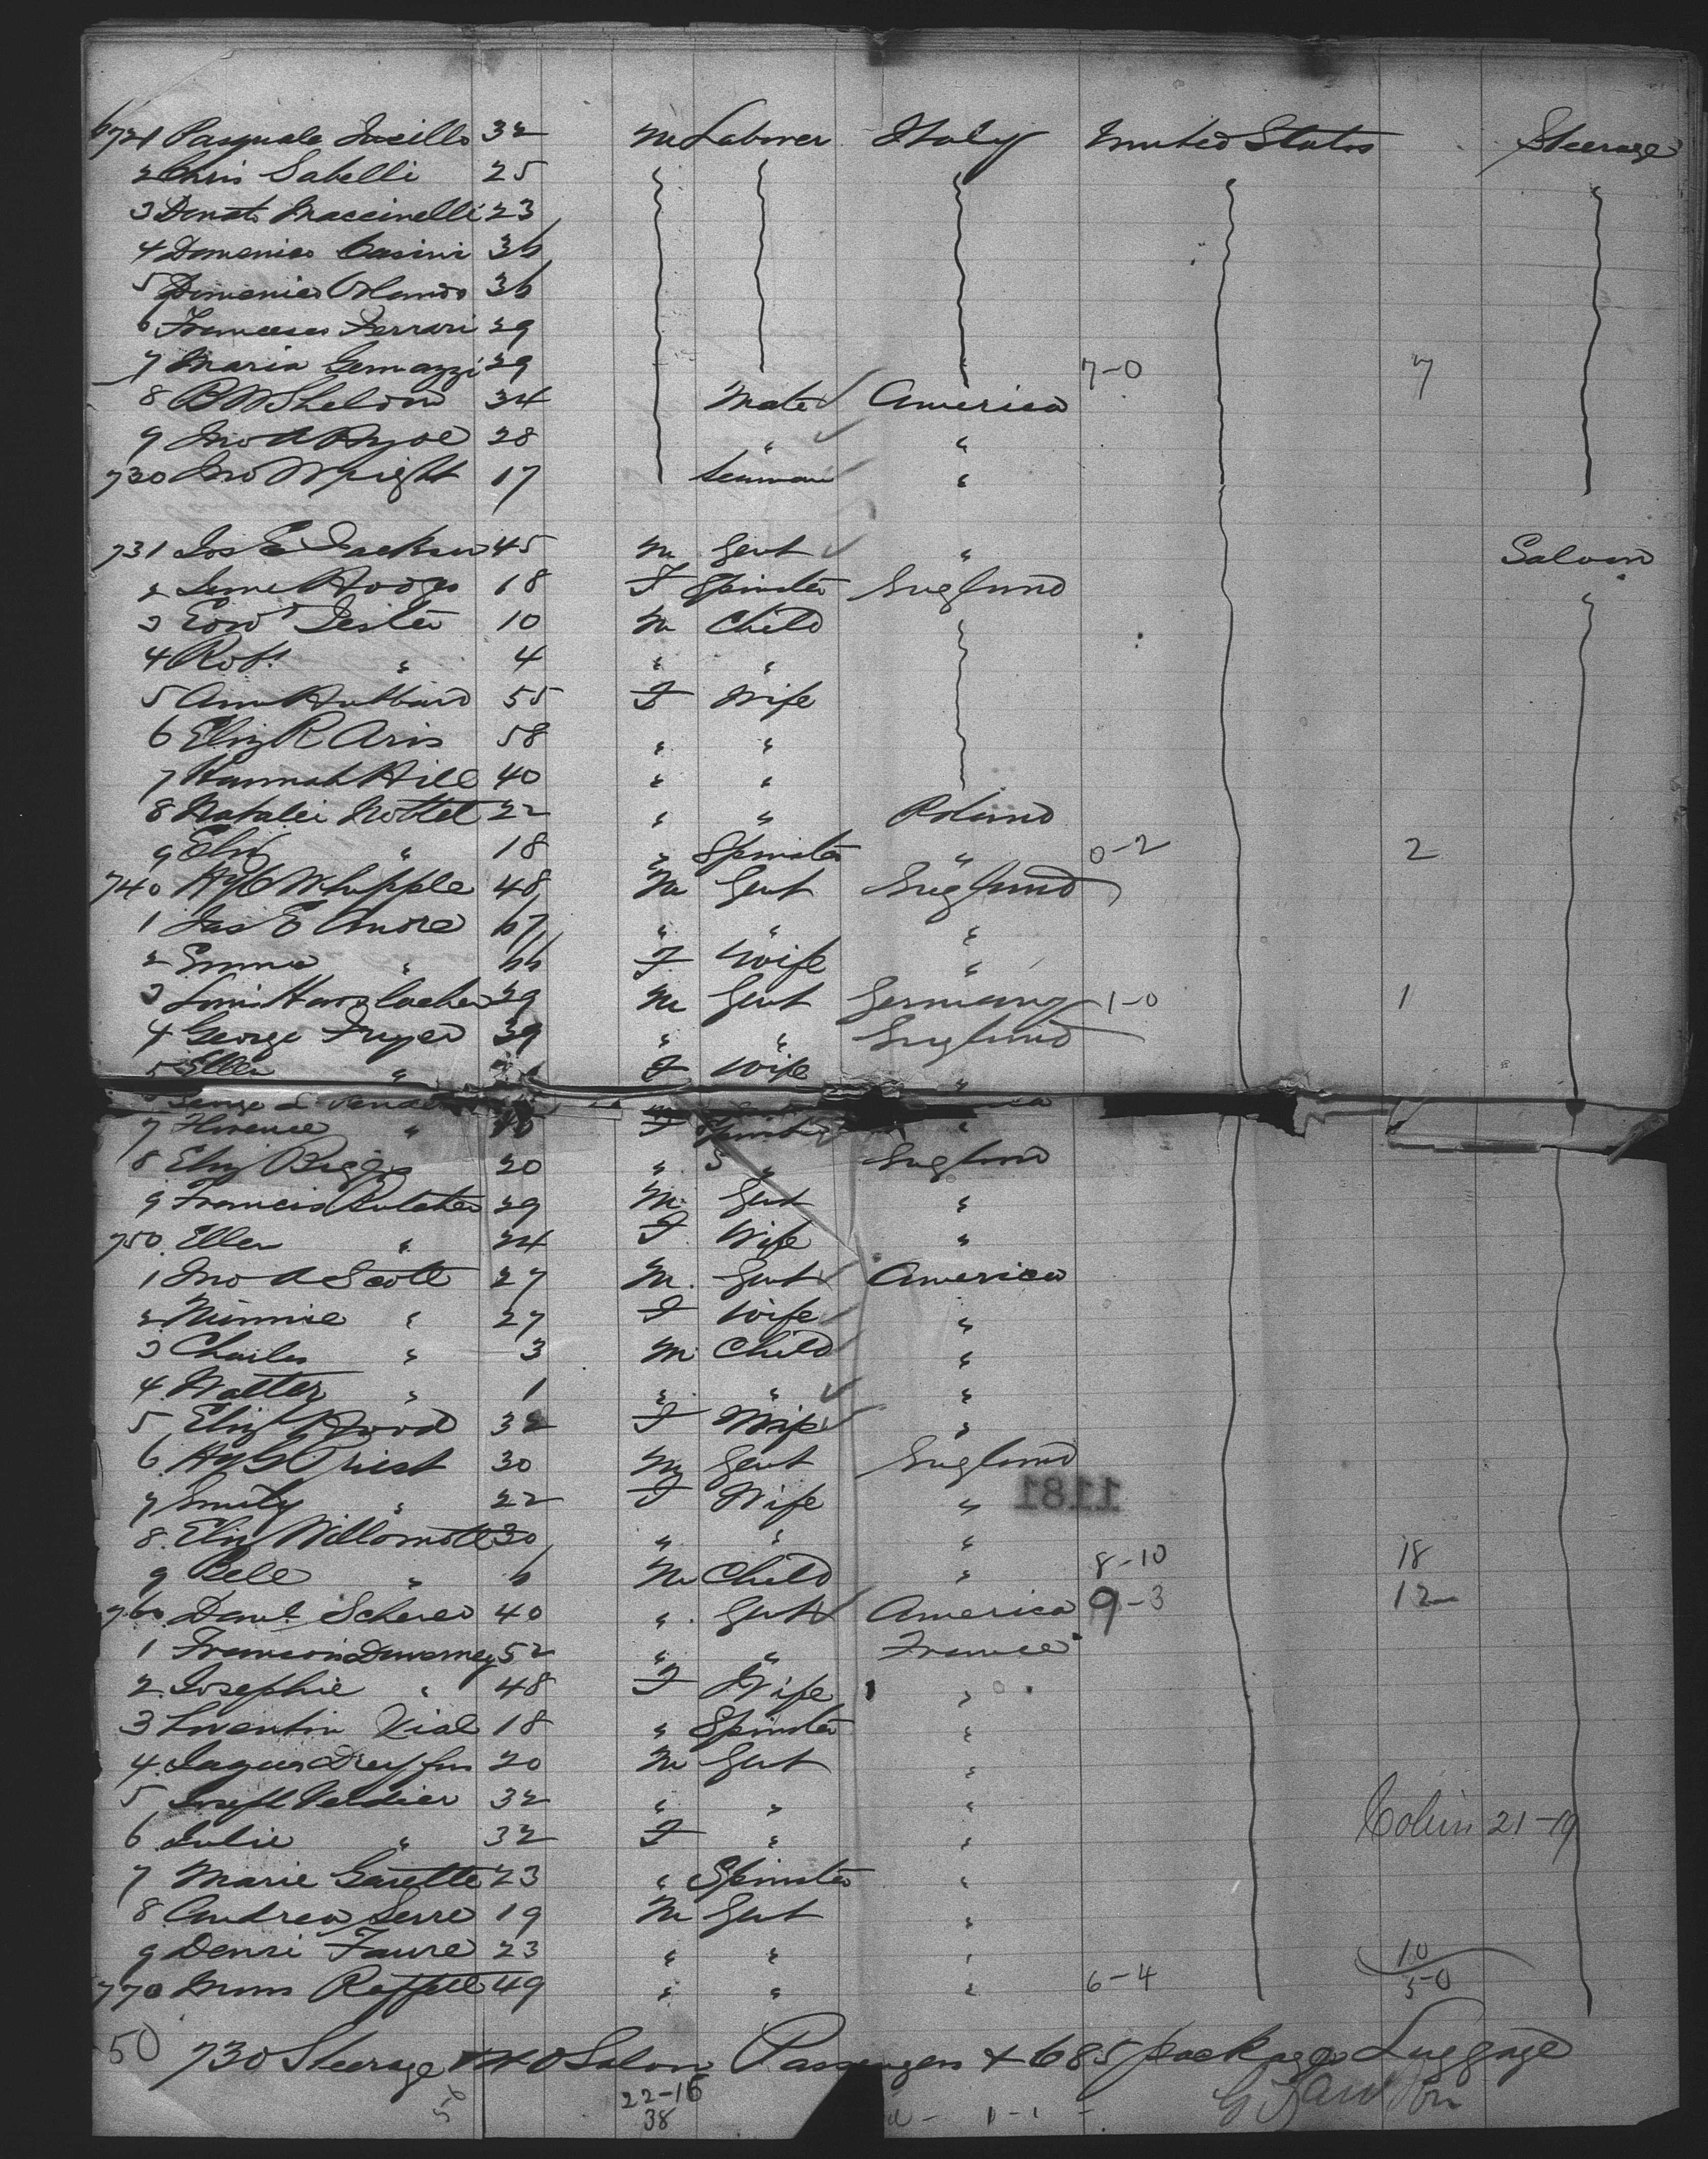 6721 Pasquale 32 M Laborer Italy United States Steerage
2 Chris Sabelli 25
3 Donato Maccinelli 23
4 Domenico Casini 36
5 Domenico Orlando 36
6 Francesco Ferrari 29
7 Maria Gemazzi 29 7-0 7
8 B W Sheldon 34 Mate America
9 Jno A 28 " "
730 Jno Wright 17 Seaman "
731 Jos E Jackson 45 M Gent " Saloon
2 18 F Spinster England
3 Edwd Lester 10 M Child
4 Robt " 4 " "
5 Ann Hubbard 55 F Wife
6 Eliz R Aris 58 " "
7 Hannah Hill 40 " "
8 Natalie Nottet 22 " " Poland
9 Eliz " 18 " Spinster " 0-2 2
740 Hy C Whipple 48 M Gent England
1 Jas E Amore 67 " " "
2 Emma " 66 F Wife "
3 Louis 29 M Gent Germany 1-0 1
4 George Fryer 39 " " England
5 Ellen " F Wife "
George L
7 Florence " F Spinster "
8 Eliz Biggs 20 " S " England
9 Francis 29 M Gent "
750 Ellen " 24 F Wife "
1 Jno A Scott 27 M Gent America
2 Minnie " 27 F Wife "
3 Charles " 3 M Child "
4 Walter " 1 " " "
5 Eliz Wood 32 F Wife "
6 Hy G Priest 30 M Gent England
1181
7 Emily " 22 F Wife "
8 Eliz Willomott 30 " " "
9 Bele " 6 M Child " 8-10 18
760 Danl Scherer 40 " Gent America 9-3 12
1 Francois Duvarney 52 " " France
2 Josephie " 48 F Wife "
3 Vial 18 " Spinster "
4 Jaques Dreyfus 20 M Gent "
5 Joseph Verdier 32 " " "
6 Julie " 32 F " " 21-19
7 Marie Garette 23 " Spinster "
8 Andrea Serre 19 M Gent "
9 Denri Faure 23 " " " 10
770 Mons 49 " " " 6-4 50
50 730 Steerage 40 Saloon Passengers & 685 packages Luggage
22-16
38